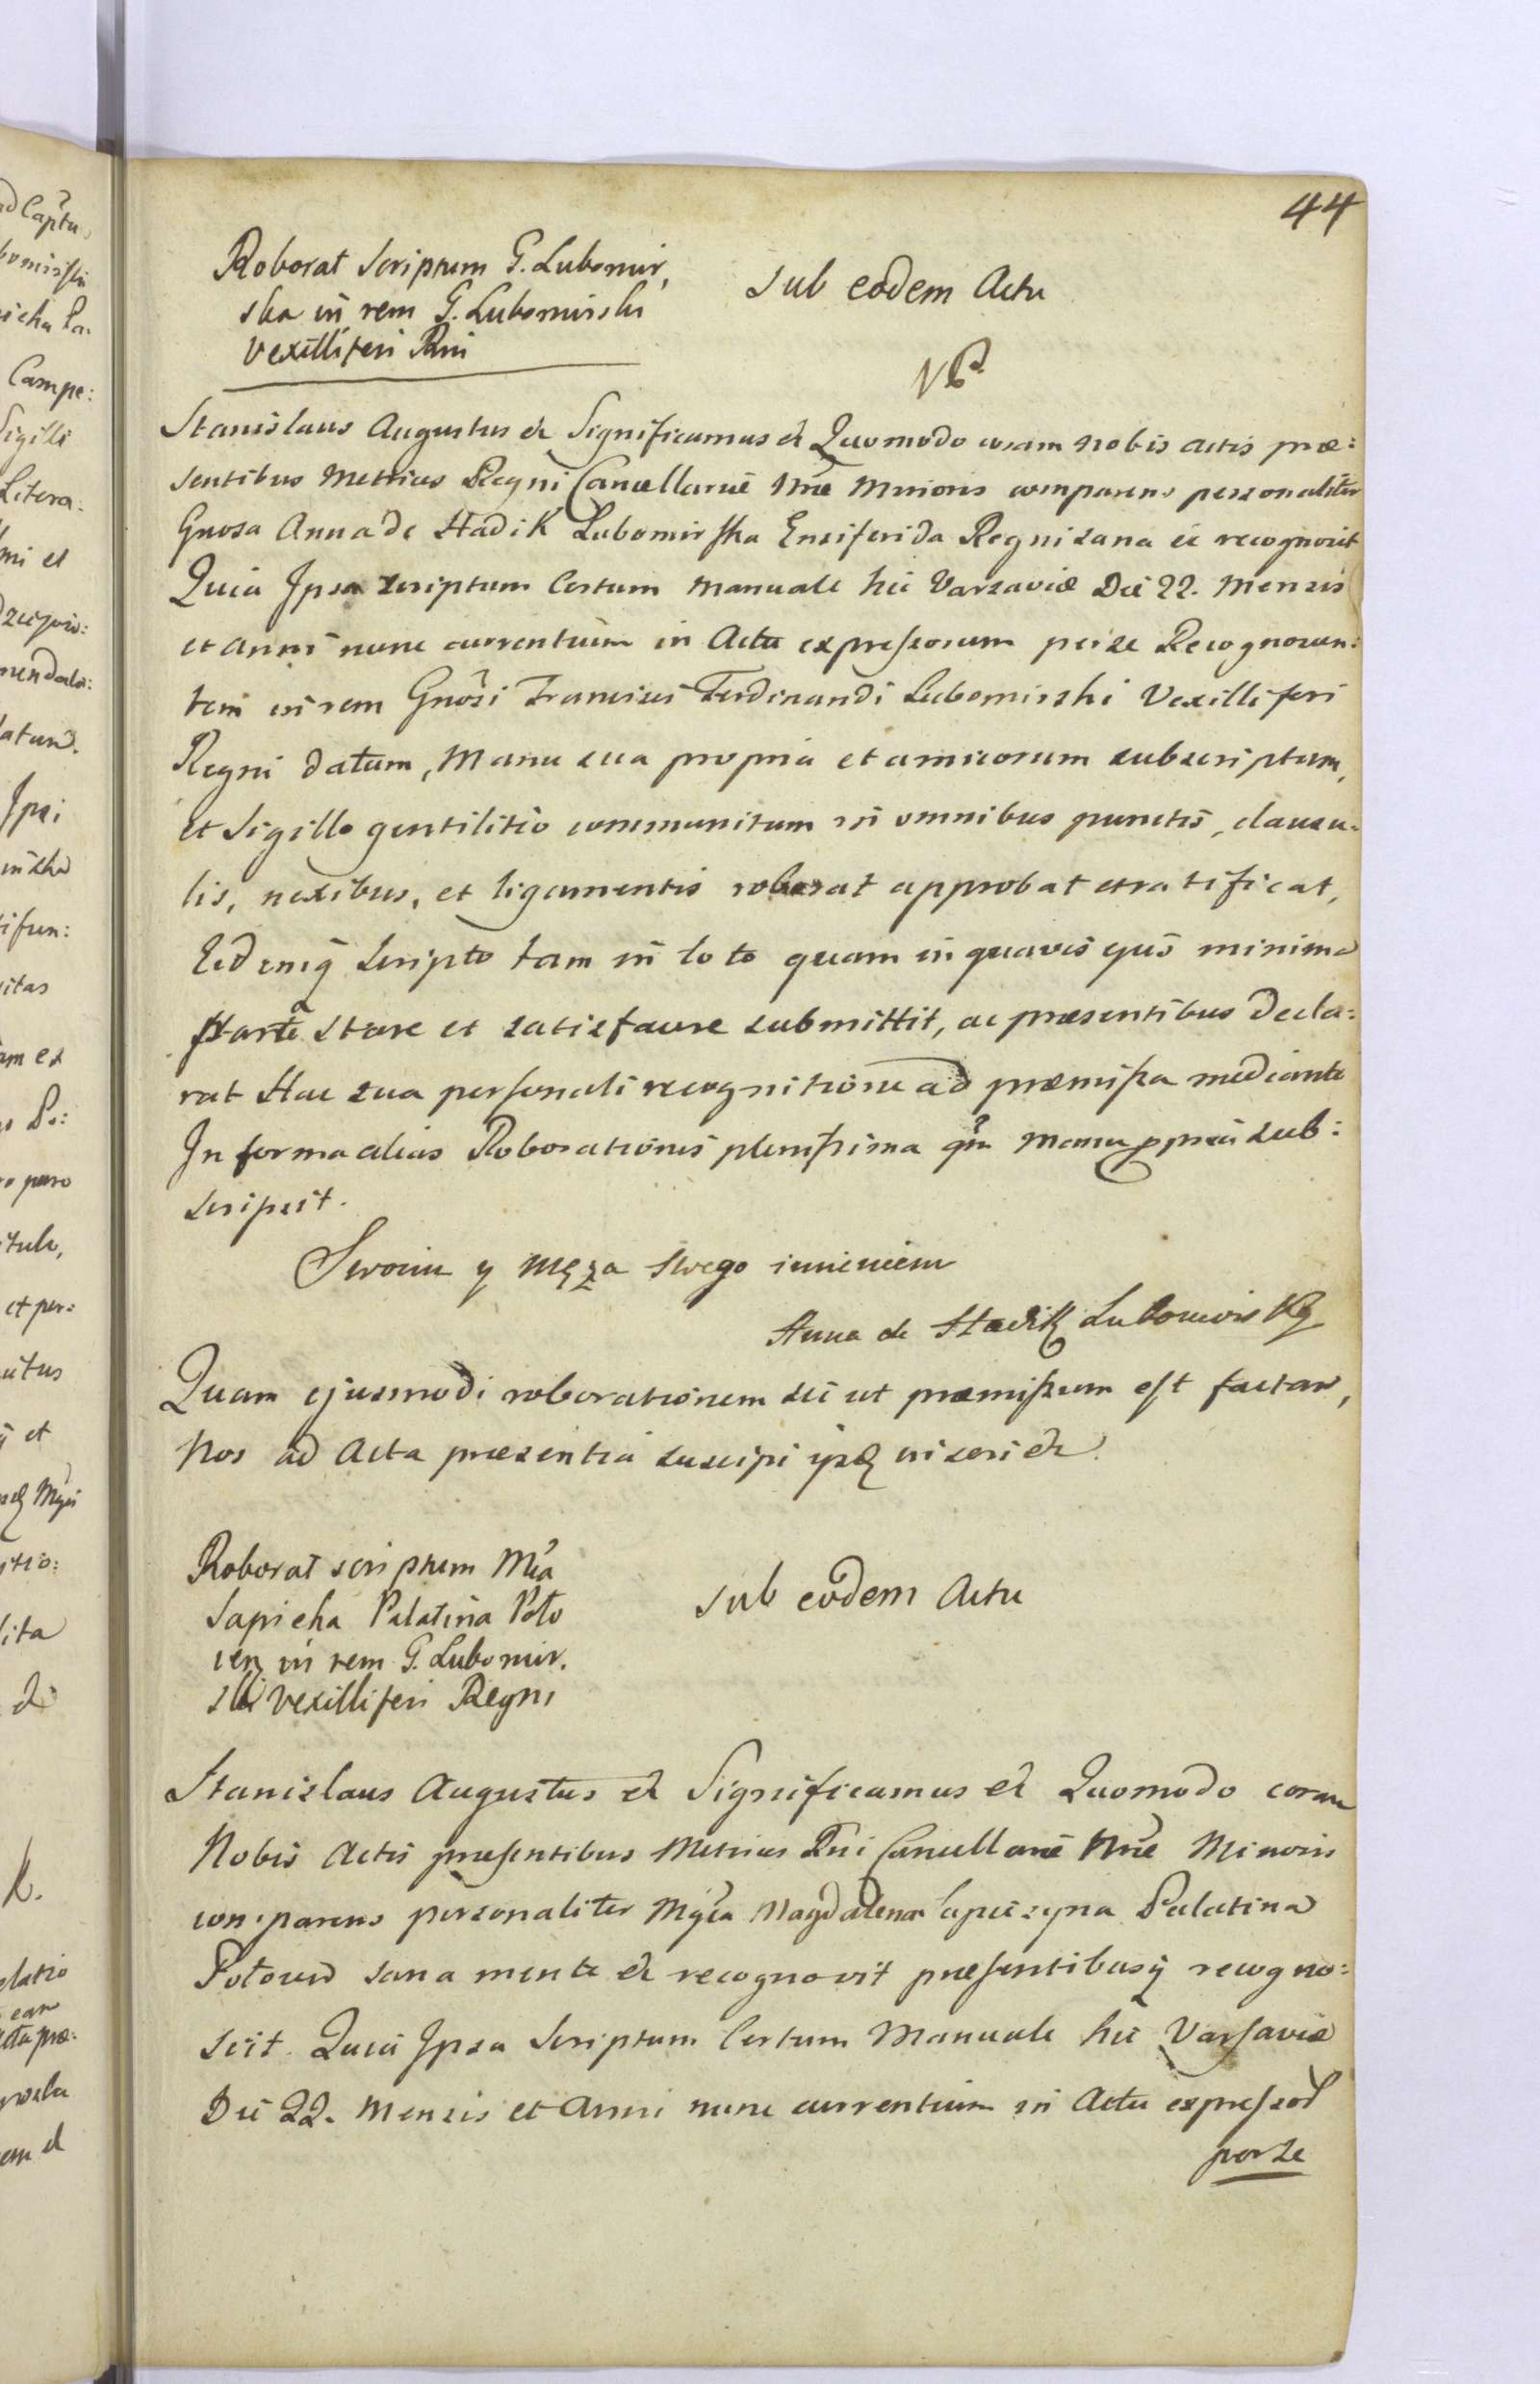 44
Roborat Scriptum G. Lubomir,
ska in rem G. Lubomirski
Vexilliferi Rni
sub eodem Actu
Stanislaus Augustus et Significamus et Quomodo coram nobis actis præ:
sentibus Metrices Regni Cancellariæ Nræ Minoris comparens personaliter
Gnosa Anna de Hadik Lubomirska Ensiferida Regni sana et recognovit
Quia Ipsa scriptum Certum Manuale hic Varsaviæ Die 22. Mensis
et anni nunc currentium in Actu expressorum per se Recognoscen:
tem in rem Gnosi Francisci Ferdinandi Lubomirski Vexilliferi
Regni datum, Manu sua propria et amicorum subscriptum,
et Sigillo gentilitio communitum in omnibus punctis, clausu:
lis, nexibus, et ligamentis roborat approbat et ratificat,
Eidemq Scripto tam in toto quam in quavis ejus minima
parte stare et satisfacere submittit, ac præsentibus decla:
rat Hac sua personali recognitione ad præmissa mediante
In forma alias Roborationis plenissima qm Manu ppria sub:
scripsit.
Swoim y Męża Swego imieniem
Anna de Hadik Lubomirska
Quam ejusmodi roborationem sic ut præmissum est factam,
Nos ad Acta præsentia suscipi ysq inseri et
Roborat scriptum Mca
Sapieha Palatina Poło
cen in rem G. Lubomir.
ski Vexilliferi Regni
sub eodem Actu
Stanislaus Augustus et Significamus et Quomodo coram
Nobis Actis præsentibus Metrices Rni Cancellariæ Nræ Minoris
comparens personaliter Mgca Magdalena Sapieżyna Palatina
Połocen sana mente et recognovit præsentibusq recogno:
scit. Quia Ipsa Scriptum Certum Manuale hic Varsaviæ
Die 22. Mensis et Anni nunc currentium in Actu expressor
per se